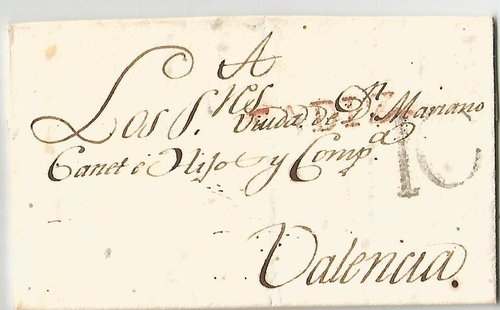 A
Los S.res Viuda de Dn Mariano
Canet e Hijo y Comp.a
10
Valencia.